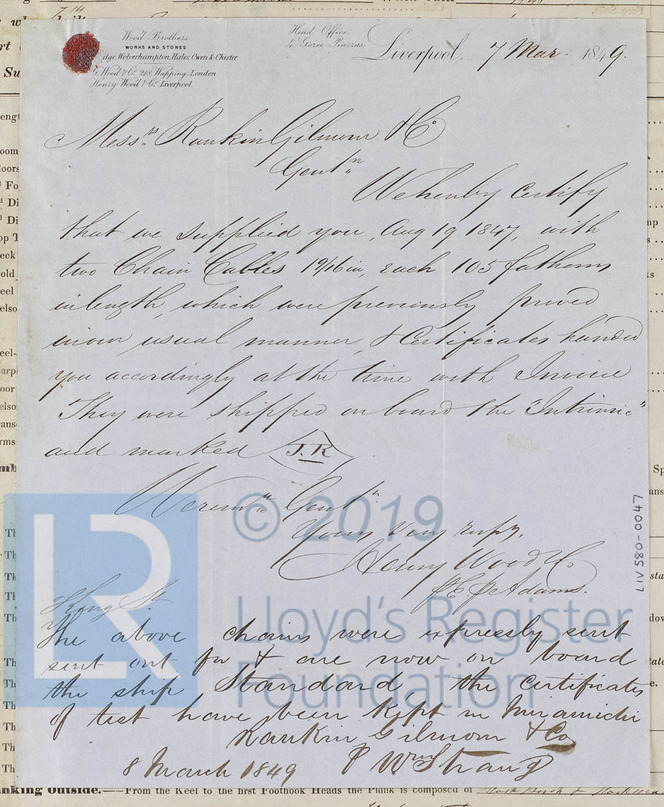 Wood Brothers
WORKS AND STORES
dge, Wolverhampton, Hales Owen & Chester.
Wood & Co. 218, Wapping, London
Henry Wood & Co. Liverpool
Head Office,
Goree Piazzas
Liverpool, 7 Mar. 1849.
Messrs. Rankin Gilmour & Co
Gentn.
We hereby certify
that we supplied you, Aug 19 1847, with
two Chain Cables 1 9/16 in, each 105 fathoms
in length, which were previously proved
in our usual manner, & Certificates handed
you accordingly at the time with Invoice
They were shipped on board the "Intrinsic"
and marked J.R
We rem. Gentn.
Yours very respy.
Henry Wood & Co
Adams.
The above chains were expressly sent
sent out for & are now on board
the ship Standard, the Certificates
of test have been kept in Miramichi
Rankin Gilmour & Co
8 March 1849 P Wm Strang
LIV 580-0047
© 2019
LR
Lloyd's Register
Foundation
anking Outside.—From the Keel to the first Foothook Heads the Plank is composed of